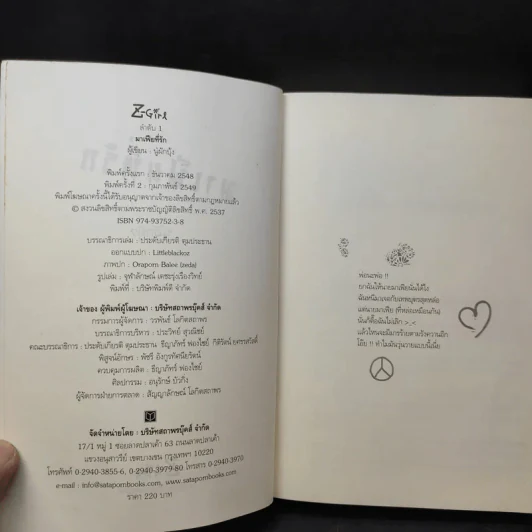 Z-Girl
ลำดับ 1
มาเฟียที่รัก
ผู้เขียน : นุ่มักนุ้ง
พิมพ์ครั้งแรก : ธันวาคม 2548
พิมพ์ครั้งที่ 2 : กุมภาพันธ์ 2549
พิมพ์โฆษณาครั้งนี้ได้รับอนุญาตจากเจ้าของลิขสิทธิ์ตามกฎหมายแล้ว
© สงวนลิขสิทธิ์ตามพระราชบัญญัติลิขสิทธิ์ พ.ศ. 2537
ISBN 974-93752-3-8
บรรณาธิการเล่ม : ประดับเกียรติ ตุมประธาน
ออกแบบปก : Littleblackoz
ภาพปก : Draporn Balee (zeda)
รูปเล่ม : จุฬาลักษณ์ เดชะรุ่งเรืองวิทย์
พิมพ์ที่ : บริษัทพิมพ์ดี จำกัด
เจ้าของ ผู้พิมพ์ผู้โฆษณา : บริษัทสถาพรบุ๊คส์ จำกัด
กรรมการผู้จัดการ : วรพันธ์ โลกิตสถาพร
บรรณาธิการบริหาร : ประวิทย์ สุวณิชย์
คณะบรรณาธิการ : ประดับเกียรติ ตุมประธาน ธีญาภัทร์ ผ่องไชย์
พิสูจน์อักษร : พัชรี อังกูรทัศนียรัตน์
ควบคุมการผลิต : ธีญาภัทร์ ผ่องไชย์
ศิลปกรรม : อนุรักษ์ บัวกิ่ง
ผู้จัดการฝ่ายการตลาด : สัญญาลักษณ์ โลกิตสถาพร
จัดจำหน่ายโดย : บริษัทสถาพรบุ๊คส์ จำกัด
17/1 หมู่ 1 ซอยลาดปลาเค้า 63 ถนนลาดปลาเค้า
แขวงอนุสาวรีย์ เขตบางเขน กรุงเทพฯ 10220
โทรศัพท์ 0-2940-3855-6, 0-2940-3979-80 โทรสาร 0-2940-3970
e-mail : info@satapornbooks.com, www.satapornbooks.com
ราคา 220 บาท
พ่อนะพ่อ !!
ยกฉันให้นายมาเฟียฉันได้ไง
ฉันหนีมาเจอกับเทพบุตรสุดหล่อ
แต่นายมาเฟีย (ที่หล่อเหมือนกัน)
ฉันก็ดื้อฉันไม่เลิก >_<
แล้วไหนจะมีมารร้ายตามรังควานอีก
โอ๊ย !! ทำไมมันวุ่นวายแบบนี้เนี่ย